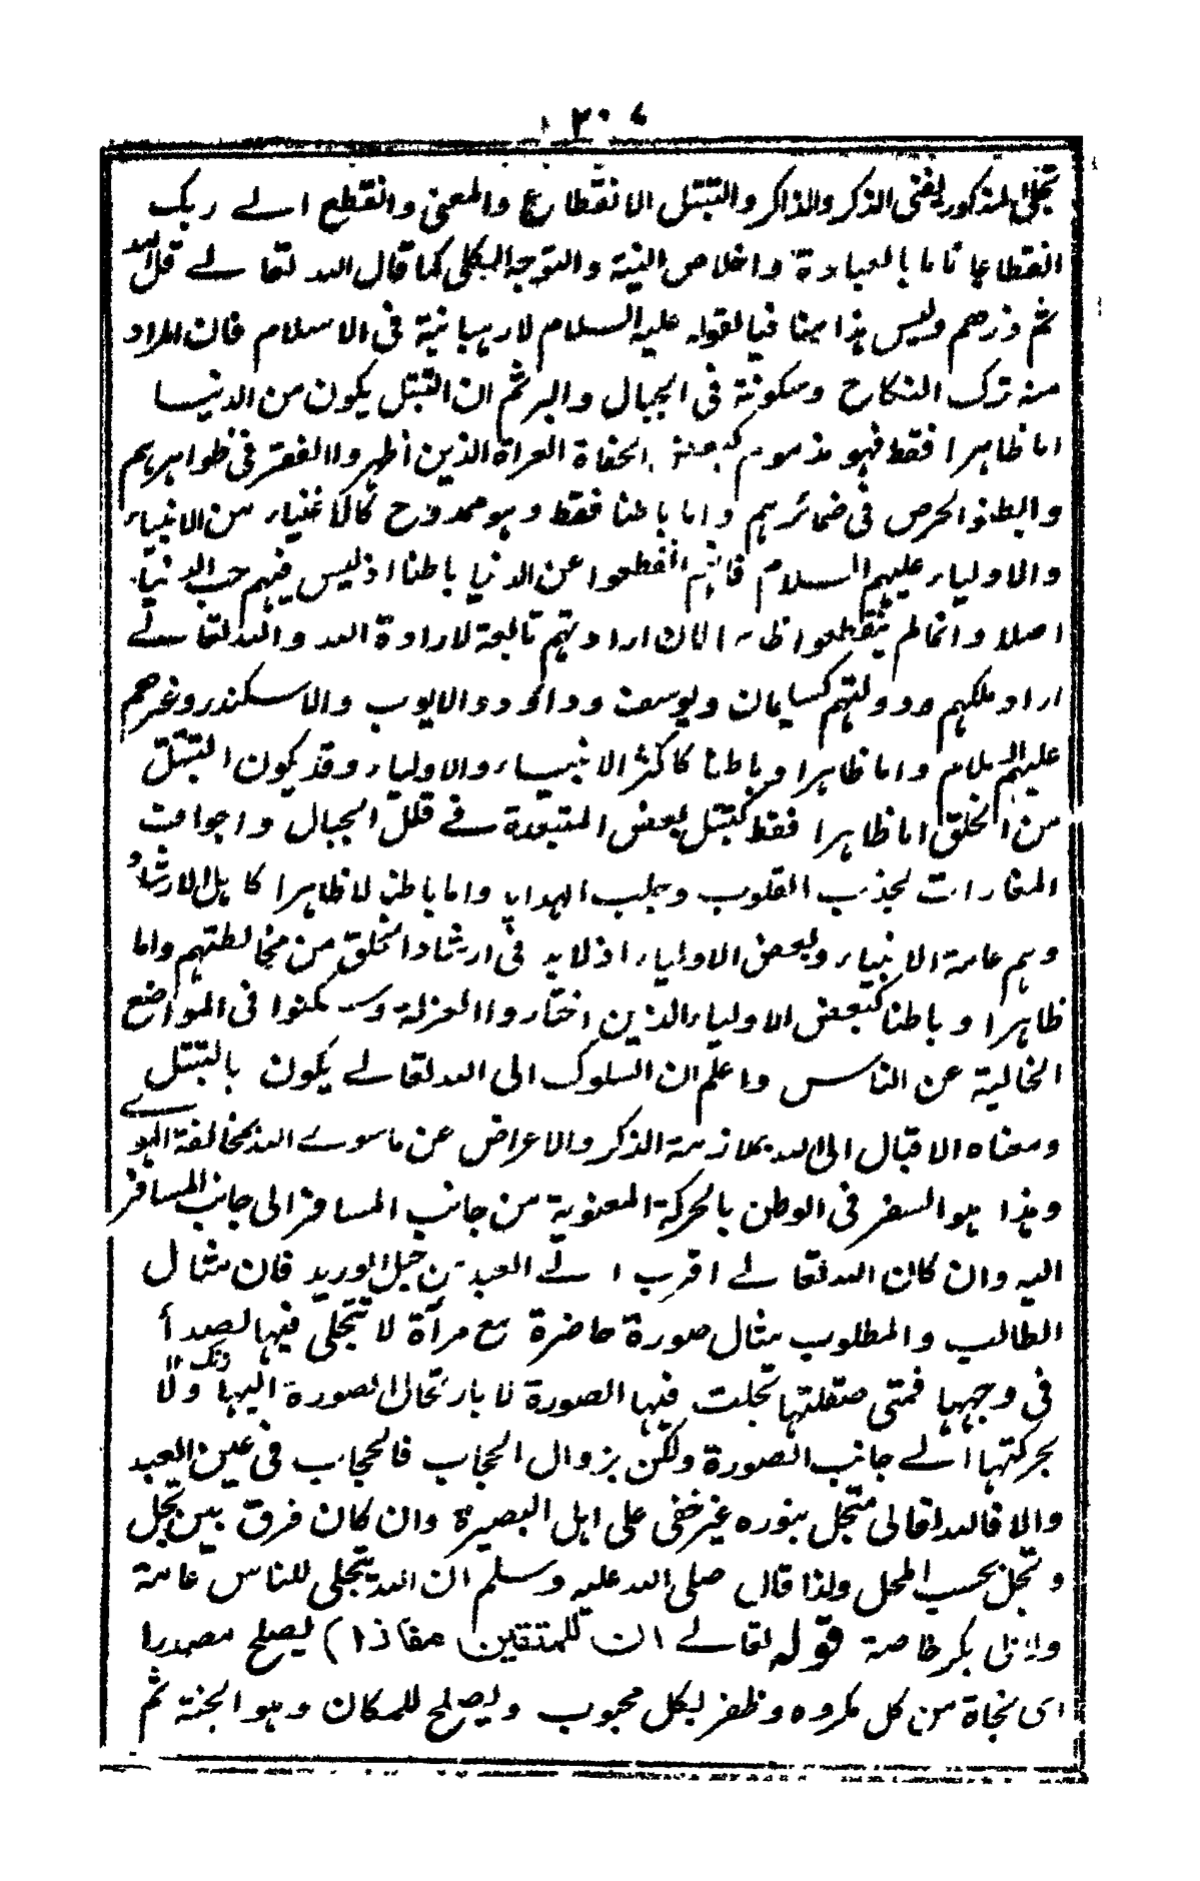 ٢٠٧
تجلى المذكور ليفنى الذكر والذاكر والتبتل الانقطاع والمعنى وانقطع الى ربك
انقطاعا تاما بالعبادة واخلاص النية والتوجه الكلى كما قال الله تعالى قل الله
ثم ذرهم وليس هذا منافيا لقوله عليه السلام لا رهبانية فى الاسلام فان المراد
منه ترك النكاح وسكونة فى الجبال والبر ثم ان التبتل يكون من الدنيا
اما ظاهرا فقط فهو مذموم كبعض الحفاة العراة الذين اظهروا الفقر فى ظواهرهم
وابطنوا الحرص فى ضمائرهم واما باطنا فقط وهو ممدوح كالاغنياء من الانبياء
والاولياء عليهم السلام فانهم انقطعوا عن الدنيا باطنا اذ ليس فيهم حب الدنيا
اصلا وانما لم ينقطعوا ظاهرا لان ارادتهم تابعة لارادة الله والله تعالى
اراد ملكهم ودولتهم كسليمان ويوسف وداؤد والايوب والاسكندر وغيرهم
عليهم السلام واما ظاهرا وباطنا كاكثر الانبياء والاولياء وقد يكون التبتل
من الخلق اما ظاهرا فقط كتبتل بعض المتعبدة فى قلل الجبال واجواف
المغارات لجذب القلوب وجلب الهدايا واما باطنا لا ظاهرا كاهل الارشاد
وهم عامة الانبياء وبعض الاولياء اذ لا بد فى ارشاد الخلق من مخالطتهم واما
ظاهرا وباطنا كبعض الاولياء الذين اختاروا العزلة وسكنوا فى المواضع
الخالية عن الناس واعلم ان السلوك الى الله تعالى يكون بالتبتل
ومعناه الاقبال الى الله بملازمة الذكر والاعراض عن ماسوى الله بمخالفة الهوى
وهذا هو السفر فى الوطن بالحركة المعنوية من جانب المسافر الى جانب المسافر
اليه وان كان الله تعالى اقرب الى العبد من حبل الوريد فان مثال
الطالب والمطلوب مثال صورة حاضرة مع مرآة لا تتجلى فيها لصدأ
زنگ
فى وجهها فمتى صقلتها تجلت فيها الصورة لا بارتحال الصورة اليها ولا
بحركتها الى جانب الصورة ولكن بزوال الحجاب فالحجاب فى عين العبد
والا فالله تعالى متجل بنوره غير خفى على اهل البصيرة وان كان فرق بين تجل
وتجل بحسب المحل ولذا قال صلى الله عليه وسلم ان الله يتجلى للناس عامة
ولابى بكر خاصة قوله تعالى (ان للمتقين مفازا) يصلح مصدرا
اى نجاة من كل مكروه وظفر بكل محبوب ويصلح للمكان وهو الجنة ثم